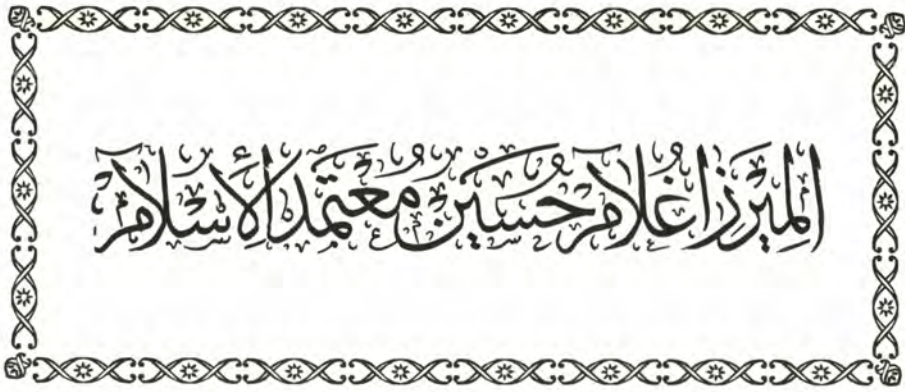 الميرزا غلام حسين معتمد الإسلام